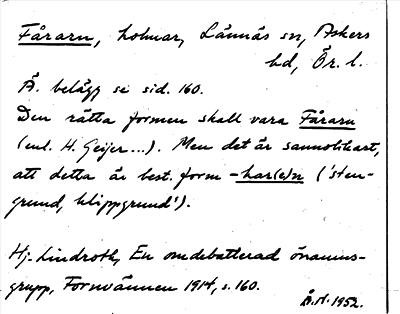 Fårarn, holmar, Lännäs sn, Askers
hd, Ör. l.
Ä. belägg se sid. 160.
Den rätta formen skall vara Fårarn
(enl. H. Geijer...). Men det är sannolikast,
att detta är best. form -har(e)n ('sten-
grund, klippgrund').
Hj. Lindroth, En omdebatterad önamns-
grupp, Fornvännen 1914, s. 160.
Å.H. 1952.